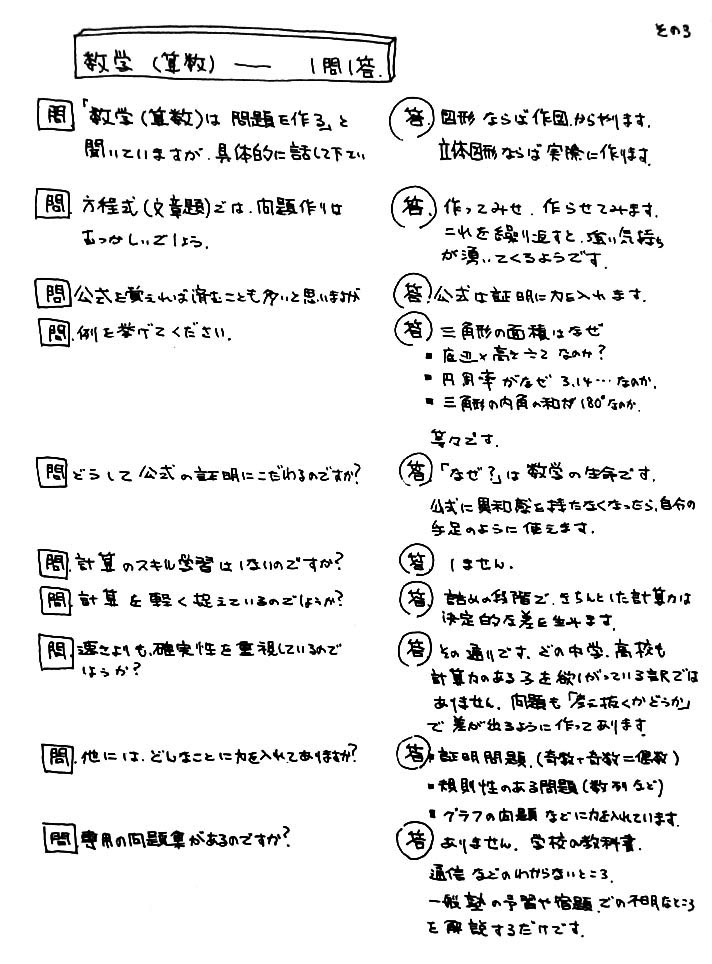 その3
数学（算数）― 1問1答.
問 「数学（算数）は 問題を作る」と
聞いていますが、具体的に話して下さい
答. 図形 ならば作図.からやります.
立体図形ならば 実際に作ります.
問. 方程式（文章題）では、問題作りは
むつかしいでしょう.
答. 作ってみせ、作らせてみます.
これを繰り返すと、強い気持ち
が湧いてくるようです.
問 公式を覚えれば済むことも多いと思いますが
答. 公式は証明に力を入れます.
問. 例を挙げてください.
答. 三角形の面積はなぜ
▪ 底辺×高さ÷2 なのか?
▪ 円周率がなぜ 3.14… なのか.
▪ 三角形の内角の和が180°なのか.
等々です.
問 どうして公式の証明にこだわるのですか?
答.「なぜ?」は数学の生命です.
公式に異和感を持たなくなったら、自分の
手足のように使えます.
問. 計算のスキル学習はしないのですか?
答 しません.
問. 計算を軽く捉えているのでしょうか?
答. 詰めの段階で、きちんとした計算力は
決定的な差を生みます.
問. 速さよりも、確実性を重視しているので
しょうか?
答. その通りです. どの中学、高校も
計算力のある子を欲しがっている訳では
ありません. 問題も「考え抜くかどうか」
で差が出るように作ってあります.
問. 他には、どんなことに力を入れてありますか?
答. ▪ 証明問題.（奇数+奇数=偶数）
▪ 規則性のある問題（数列など）
▪ グラフの問題 などに力を入れています.
問. 専用の問題集があるのですか?
答. ありません. 学校の教科書.
通信などのわからないところ.
一般塾の予習や宿題.での不明なところ
を解説するだけです.